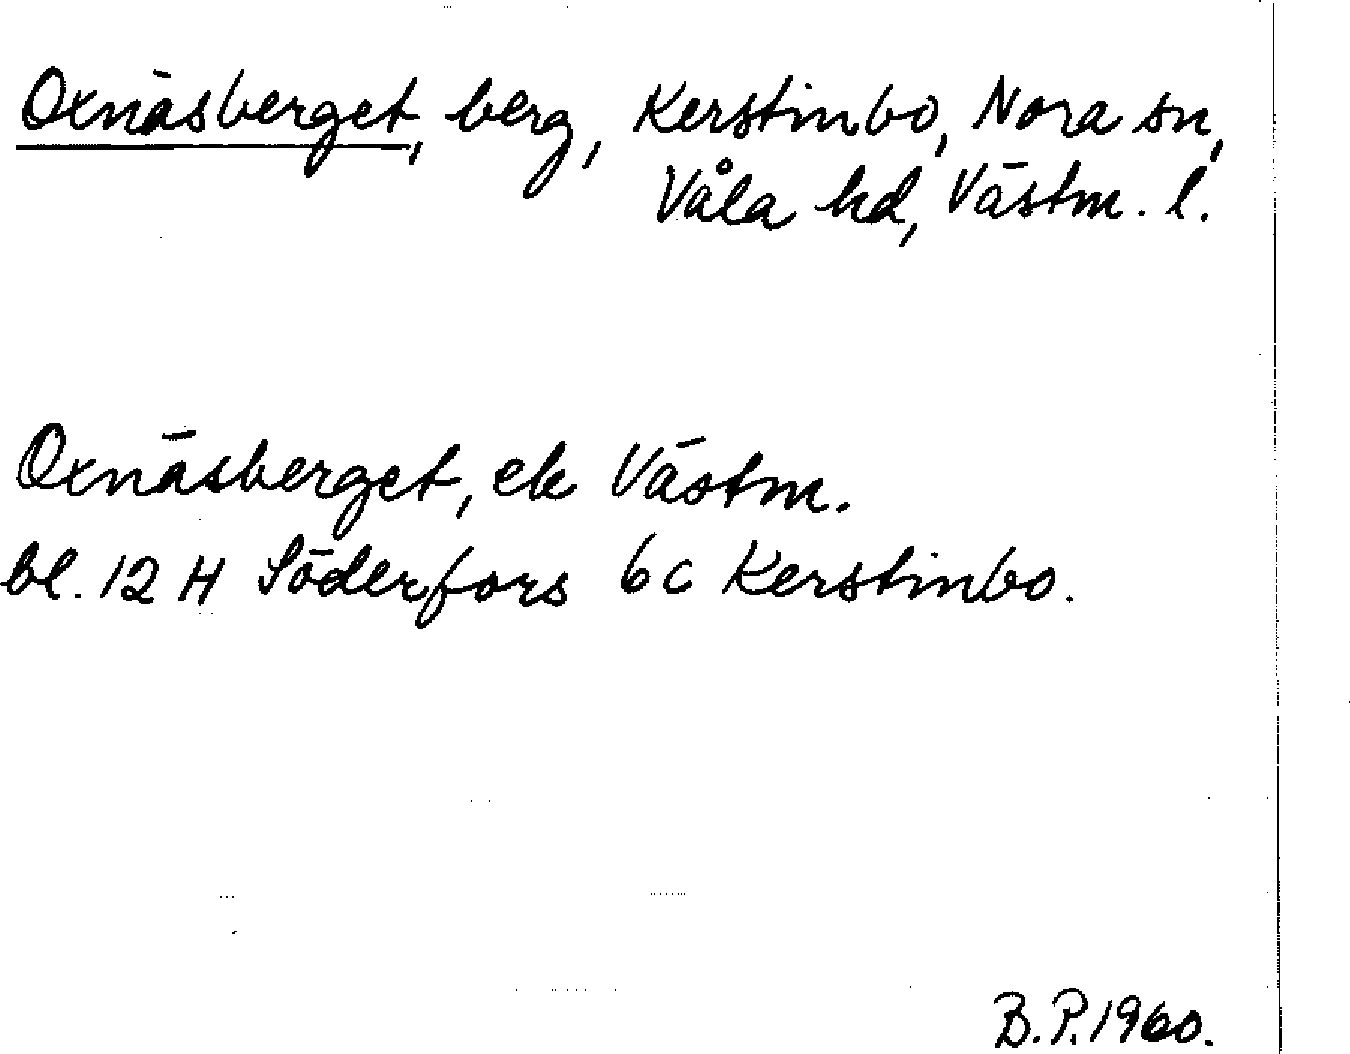 Oxnäsberget, berg, Kerstinbo, Nora sn,
Våla hd, Västm. l.
Oxnäsberget, ek Västm.
bl. 12 H Söderfors 6c Kerstinbo.
B.P. 1960.